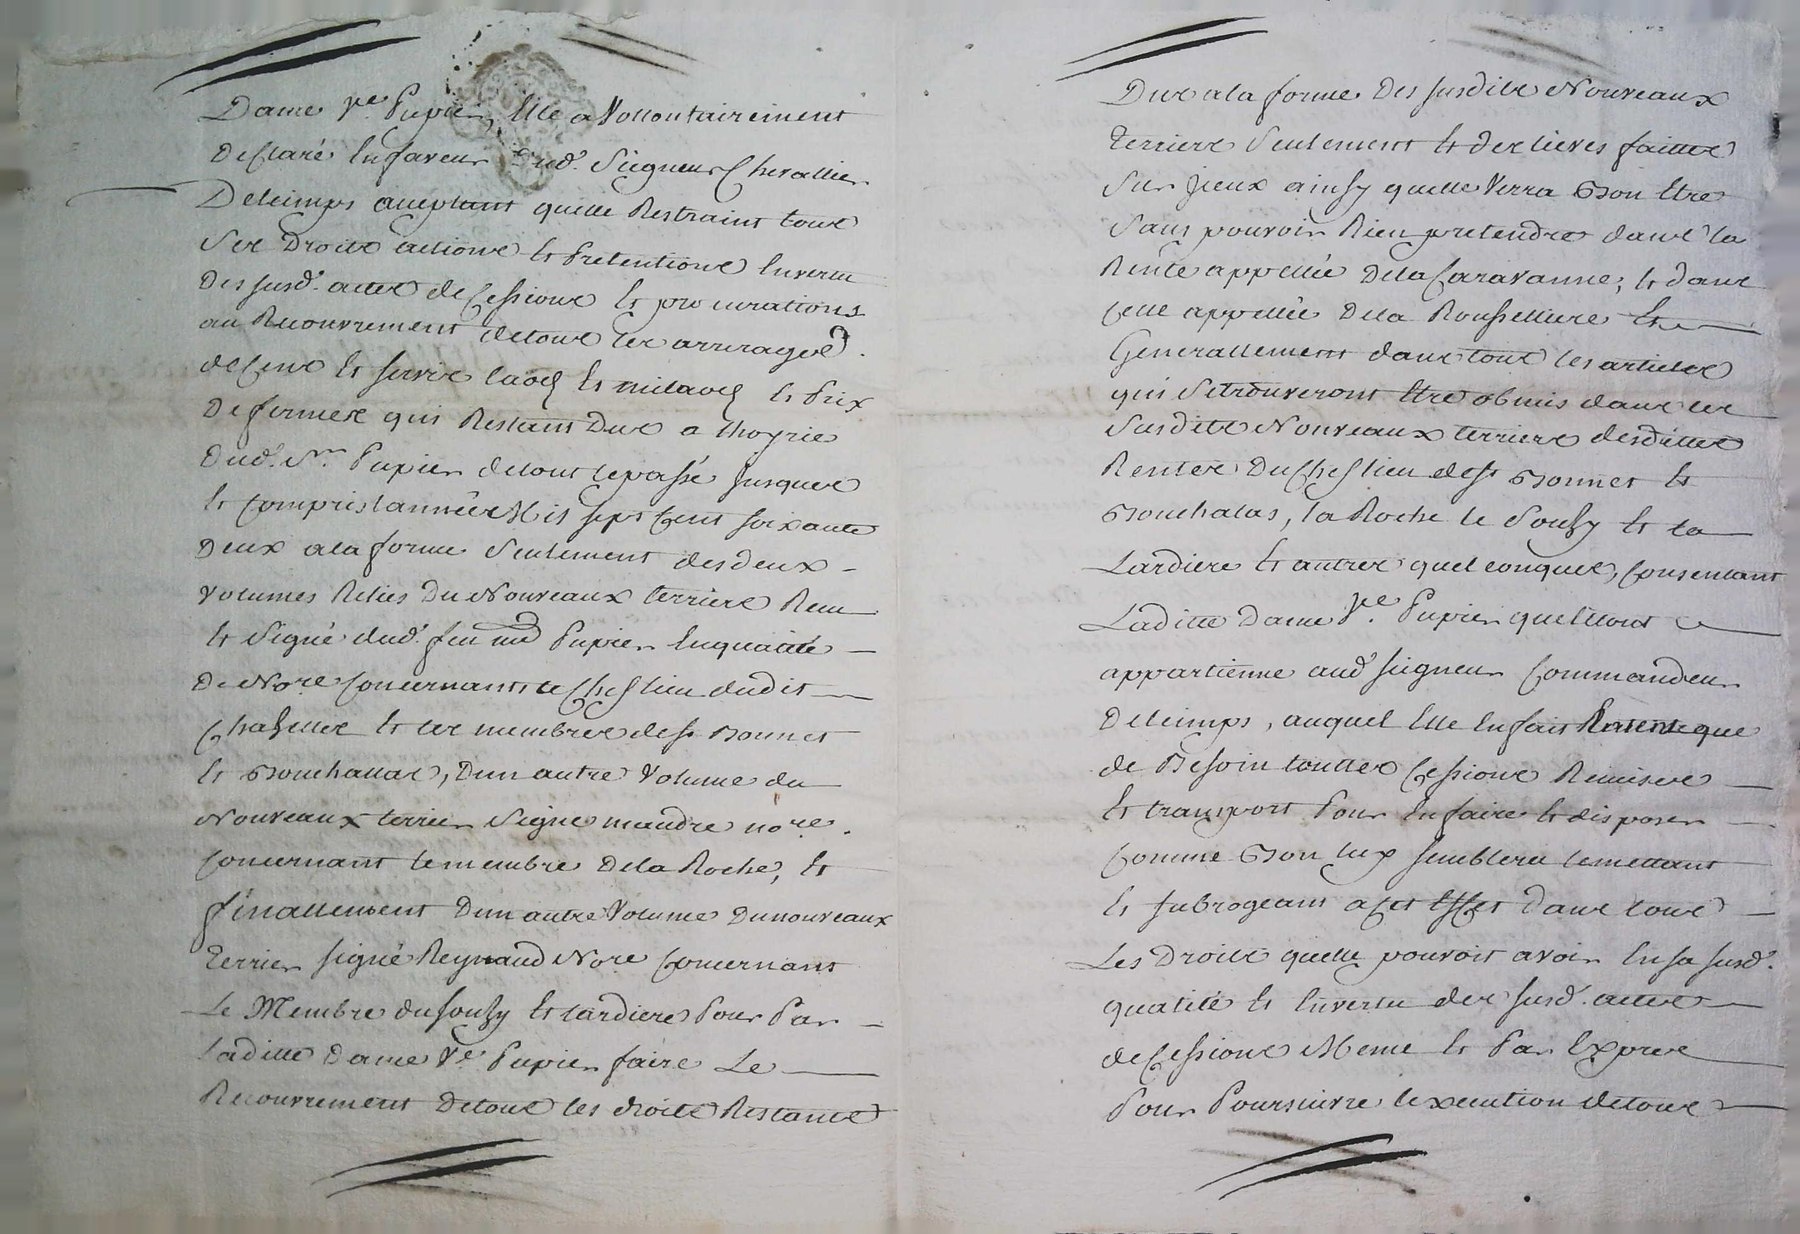 Dame Ve. Pupier, Elle a Vollontairement
Declaré En faveur dud. Seigneur Chevallier
Deleimps aceptant quelle Restraint tous
Ses Droits actions Et Pretentions En vertu
Des susd. actes de Cessions Et procurations
au Recouvrement de tous les arrerages
de Cens Et servis laods Et milaods Et Prix
De fermes qui Restant Dus a l'hoyrie
Dud. Sr. Pupier de tout le passé Jusques
Et Compris l'année Mil sept Cent soixante
Deux a la forme Seulement des deux
Volumes Reliés Du Nouveaux terrier Renu
Et Signé dud. feu me Pupier En qualité
De Nore Concernants le Chef lieu dudit
Chazelles Et les membres de st Bonnet
Et Bouchallas, D'un autre Volume du
Nouveaux terrier Signé mandre nore.
Concernant le membre De la Roche, Et
finallement D'un autre Volume Du nouveaux
terrier signé Reynaud Nore Concernant
Le Membre du Souzy Et Lardiere Pour Par
Ladite Dame Ve Pupier faire Le
Recouvrement De tous les droits Restants
Dus a la forme Des susdits Nouveaux
terriers Seulement Et des lieves faittes
Sur Jceux ainsy quelle Verra Bon Etre
Sans pouvoir Rien pretendre dans la
Rente appellée De la Caravanne, Et dans
Celle appellée De la Rousselliere Et
Generallement dans tous les articles
qui Se trouveront Etre obmis dans les
Susdits Nouveaux terriers desdittes
Rentes Du Chef lieu de st Bonnet Et
Bouchalas, la Roche le Souzy Et la
Lardiere Et autres quelconques, Consentant
Laditte Dame Ve. Pupier quelleont
appartienne aud seigneur Commandeur
Deleimps, auquel Elle En fait que
de Besoin touttes Cessions Remises
Et transport Pour En faire Et disposer
Comme Bon luy semblera le mettant
Et subrogeant a Cet Effet Dans tous
Les Droits quelle pouvoit avoir En sa susd.
qualité Et En vertu des susd. actes
de Cessions Meme Et Par Exprès
Pour Poursuivre l'execution de tous